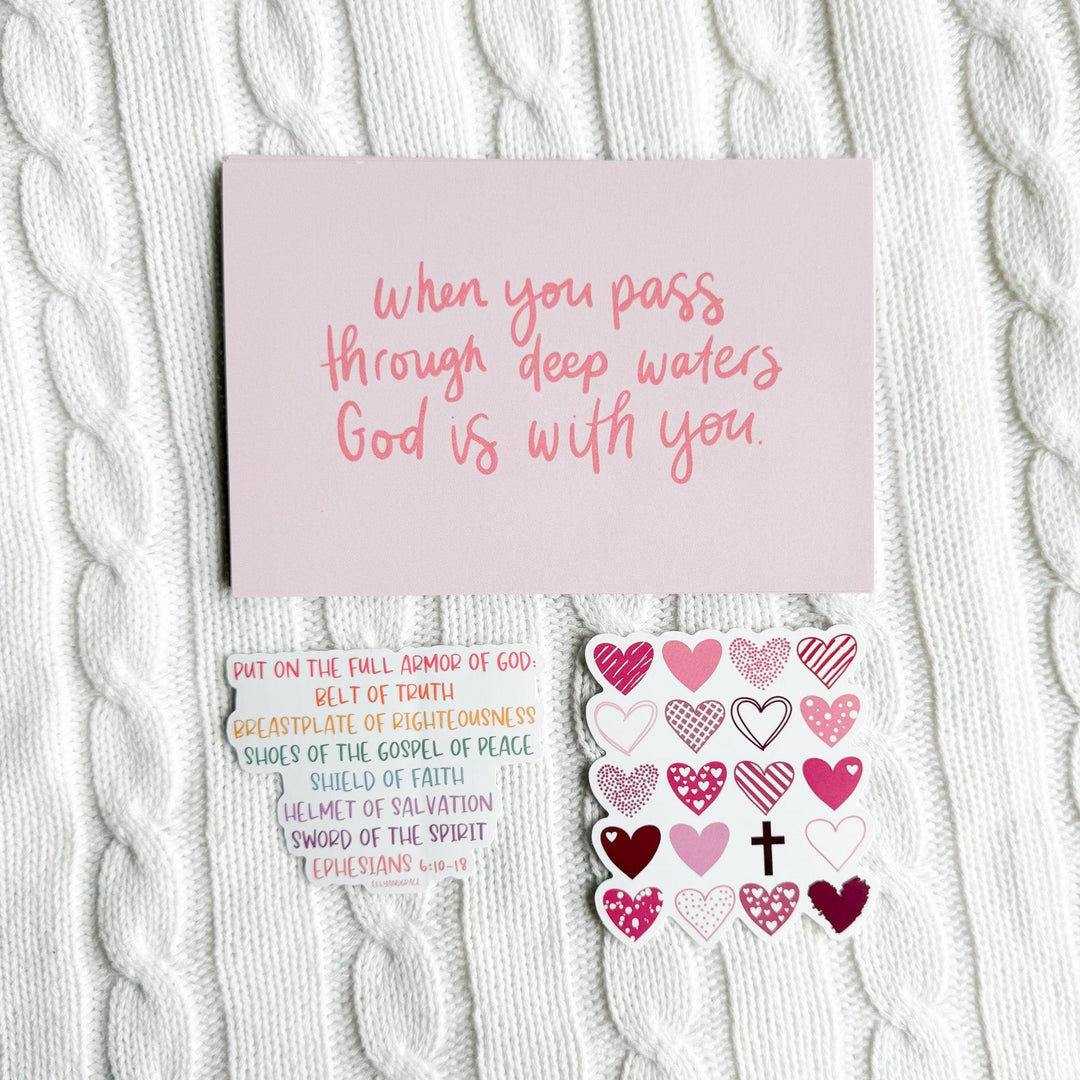 when you pass
through deep waters
God is with you.
PUT ON THE FULL ARMOR OF GOD:
BELT OF TRUTH
BREASTPLATE OF RIGHTEOUSNESS
SHOES OF THE GOSPEL OF PEACE
SHIELD OF FAITH
HELMET OF SALVATION
SWORD OF THE SPIRIT
EPHESIANS 6:10-18
ELLYANDGRACE